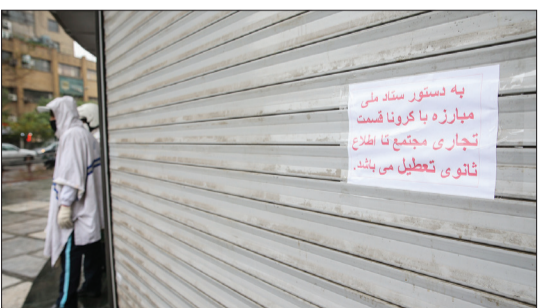 به دستور ستاد ملی
مبارزه با کرونا قسمت
تجاری مجتمع تا اطلاع
ثانوی تعطیل می باشد.